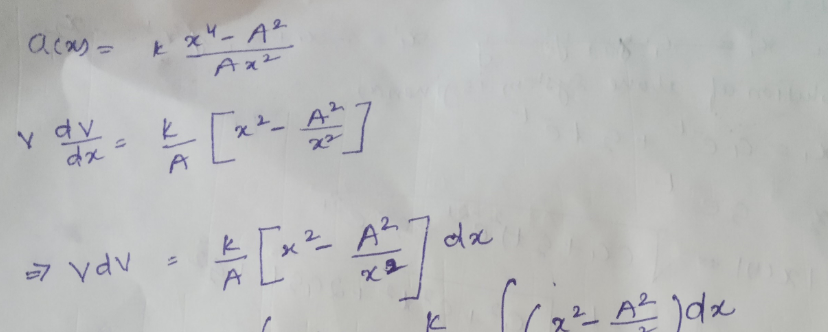 a(x) = k (x⁴ - A²)/(Ax²)
v dv/dx = k/A [x² - A²/x²]
⇒ vdv = k/A [x² - A²/x²] dx
∫ k ∫ (x² - A²/x²) dx